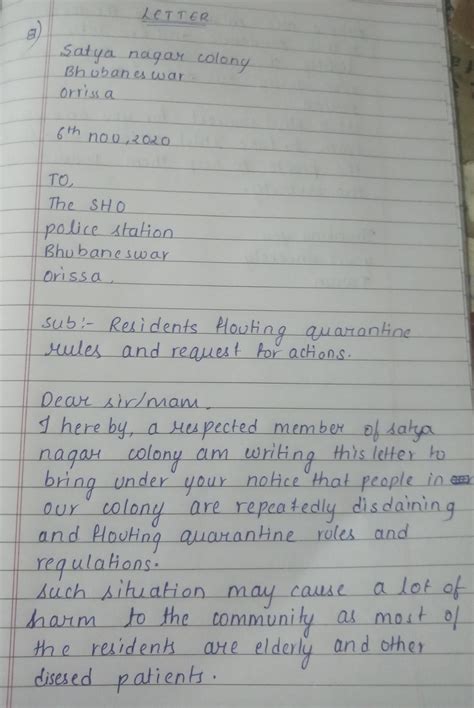 LETTER
8)
Satya nagar colony
Bhubaneswar.
orrissa
6th nov, 2020
TO,
The SHO
police station
Bhubaneswar
orissa,
sub:- Residents flouting quarantine
rules and request for actions.
Dear sir/mam,
I here by, a respected member of satya
nagar colony am writing this letter to
bring under your notice that people in
our colony are repeatedly disdaining
and flouting quarantine rules and
regulations.
such situation may cause a lot of
harm to the community as most of
the residents are elderly and other
disesed patients.